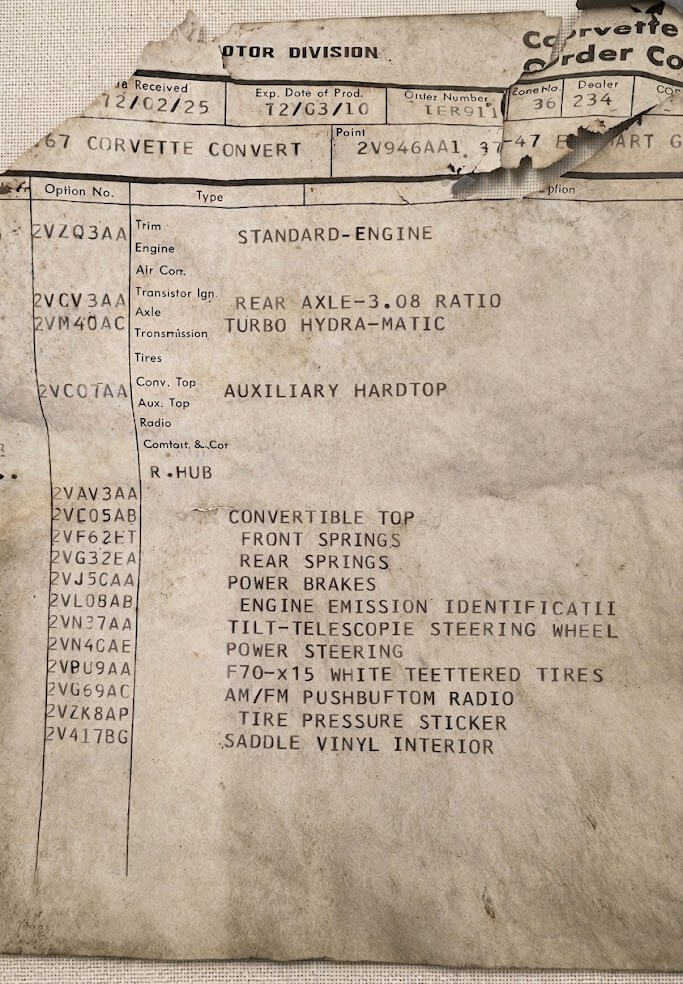 OTOR DIVISION
Corvette
Order Co
Received Exp. Date of Prod. Order Number Zone No. Dealer
12/02/25 12/G3/10 1ER911 36 234
67 CORVETTE CONVERT Paint 2V946AA1 37-47 ART G
Option No. Type ption
2VZQ3AA Trim STANDARD-ENGINE
Engine
Air Con.
2VCV3AA Transistor Ign. REAR AXLE-3.08 RATIO
Axle
2VM40AC Transmission TURBO HYDRA-MATIC
Tires
2VC07AA Conv. Top AUXILIARY HARDTOP
Aux. Top
Radio
Comfort. & Cor
R.HUB
2VAV3AA
2VC05AB CONVERTIBLE TOP
2VF62ET FRONT SPRINGS
2VG32EA REAR SPRINGS
2VJ5CAA POWER BRAKES
2VL08AB ENGINE EMISSION IDENTIFICATII
2VN37AA TILT-TELESCOPIE STEERING WHEEL
2VN4CAE POWER STEERING
2VPU9AA F70-X15 WHITE TEETTERED TIRES
2VG69AC AM/FM PUSHBUFTOM RADIO
2VZK8AP TIRE PRESSURE STICKER
2V417BG SADDLE VINYL INTERIOR